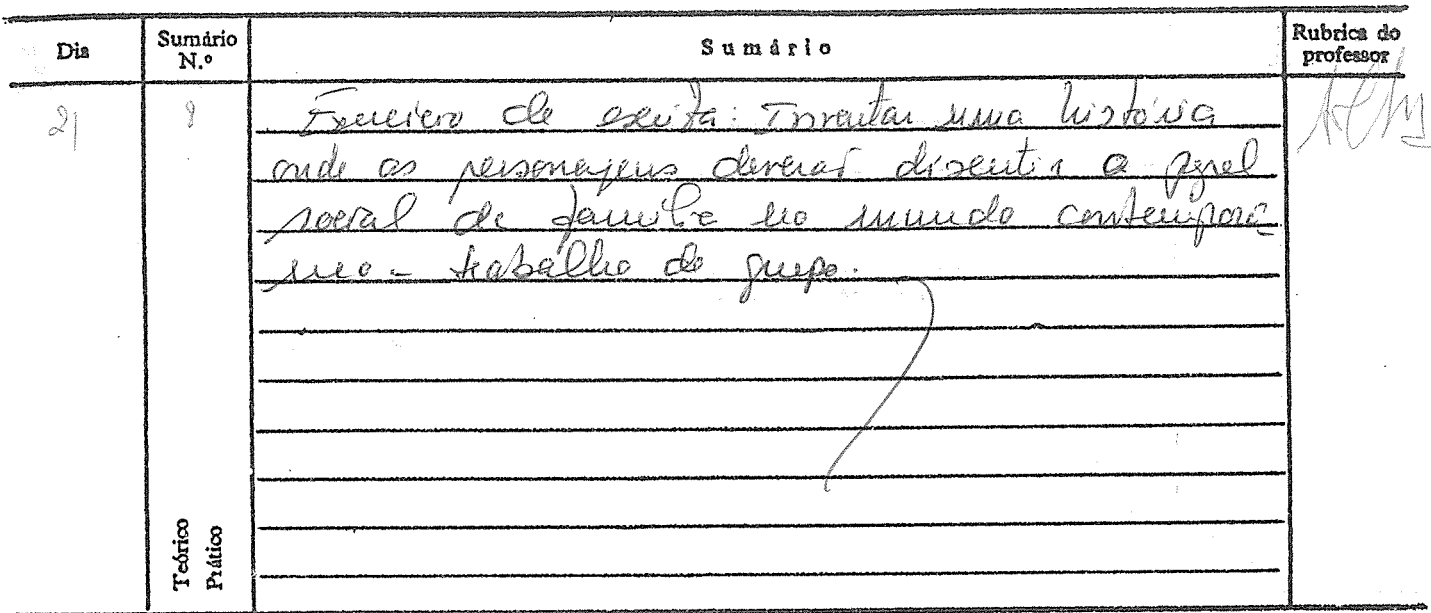 Dia
Sumário N.º
Sumário
Rubrica do professor
21
Exercício de escrita: Inventar uma história
onde as personagens deverão discutir o papel
social da família no mundo contemporâ
neo - trabalho de grupo.
Teórico
Prático